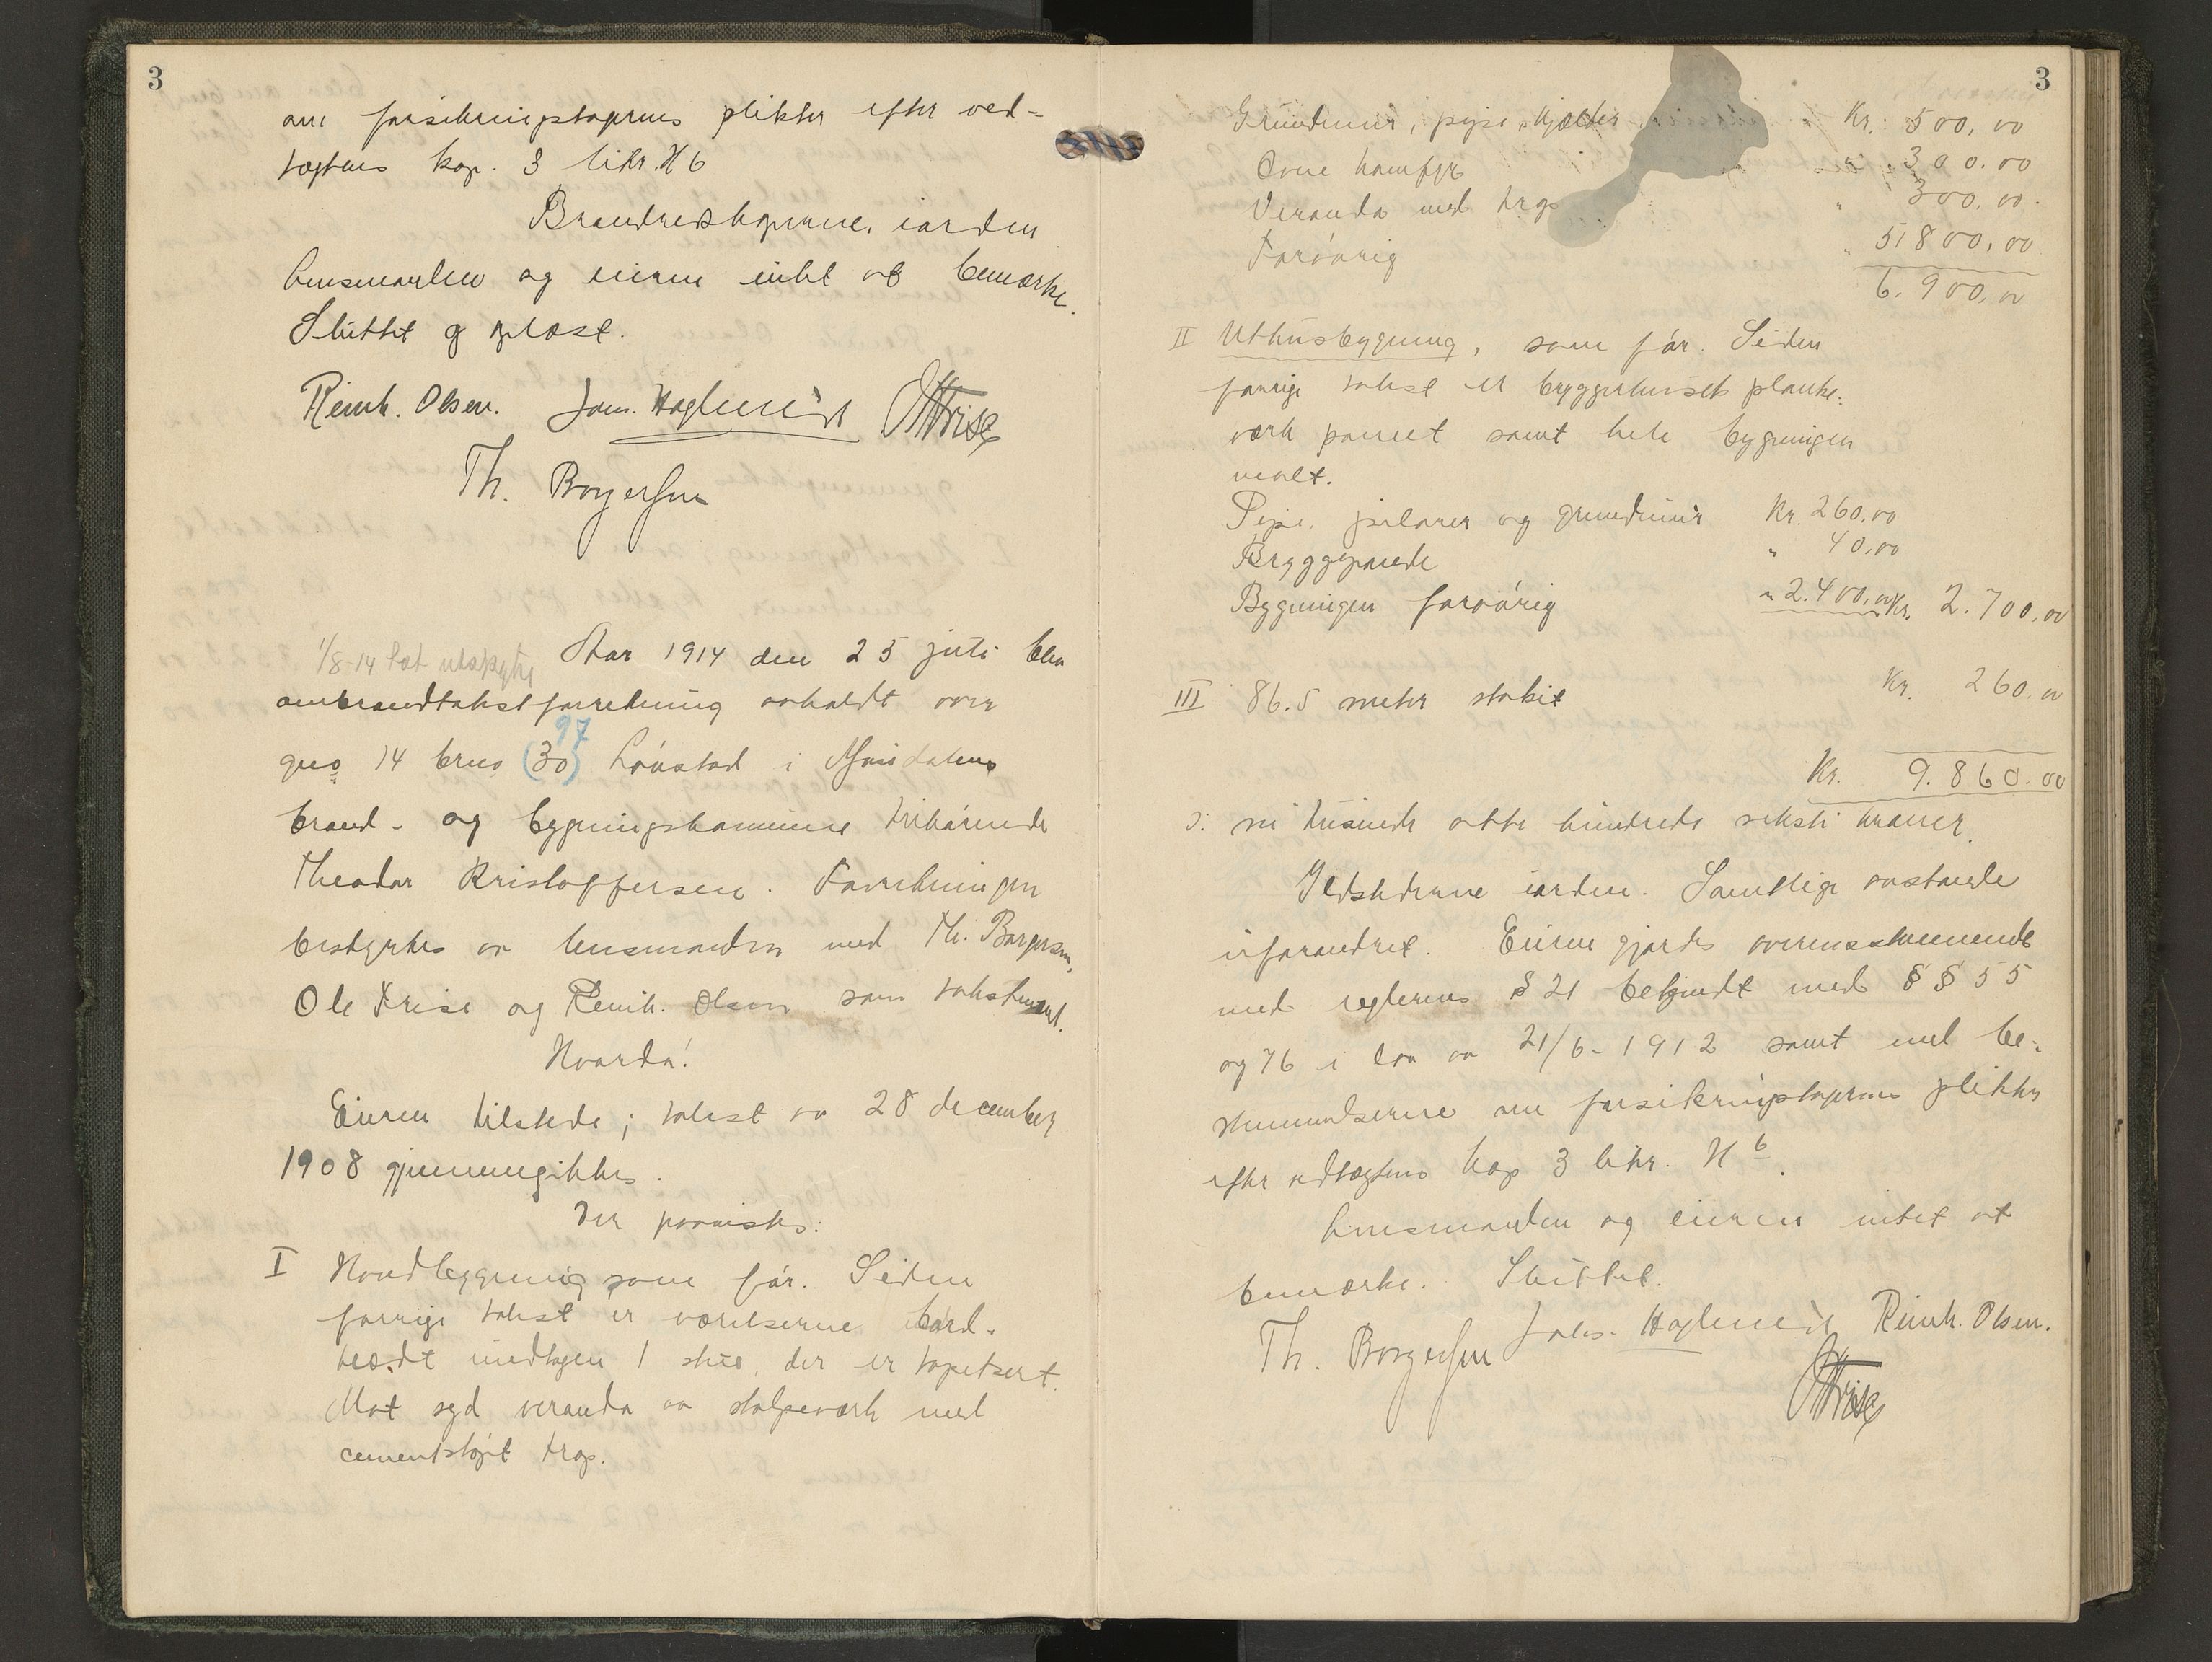 3
om forsikringstagerens plikter efter ved-
tægtens kap. 3 litr. H 6
Brandredskaperne i orden
Lensmanden og eieren intet at bemerke.
Sluttet og oplæst.
Reinh. Olsen. Johs. Haglund OTFrise
Th. Borgersen
1/8-14 tat utskrift
Aar 1914 den 25 juli blev
ombrandtakstforretning avholdt over
gno 14 brno (30) 97 Lønstad i
brand- og bygningskommune tilhørende
Theodor Kristoffersen. Forretningen
bestyrtes av lensmanden med Th. Borgersen,
Ole Frise og Reinh. Olsen som takstmænd.
Hvorda!
Eieren tilstede; takst av 28 december
1908 gjennemgikkes.
Der paavistes:
I Hovedbygning som før. Siden
forrige takst er værelserne bord-
klædt undtagen 1 stue, der er tapetsert.
Mot syd veranda av stolpeverk med
cementstøpt trap.
3
Grundmur, pipe, kjælder Kr. 500,00
Ovne komfyr " 300.00
Veranda med trap " 300,00.
Forøvrig " 5800,00
6.900,00
II Uthusbygning, som før. Siden
forrige takst er bryggerhusets planke-
verk panelt samt hele bygningen
malt.
Pipe, pilarer og grundmur Kr. 260,00
Bryggepande " 40,00
Bygningen forøvrig " 2.400,00 Kr. 2.700,00
III 86.5 meter stakit Kr. 260,00
Kr. 9.860.00
ɔ: ni tusinde otte hundrede seksti kroner.
Ildstederne i orden. Samtlige avstande
uforandret. Eieren gjordes overensstemmende
med reglernes § 21 bekjendt med § § 55
og 76 i lov av 21/6-1912 samt med be-
stemmelserne om forsikringstagerens plikter
efter vedtægtens kap 3 litr. H 6.
Lensmanden og eieren intet at
bemærke. Sluttet.
Th. Borgersen Johs. Haglund Reinh. Olsen.
OTFrise